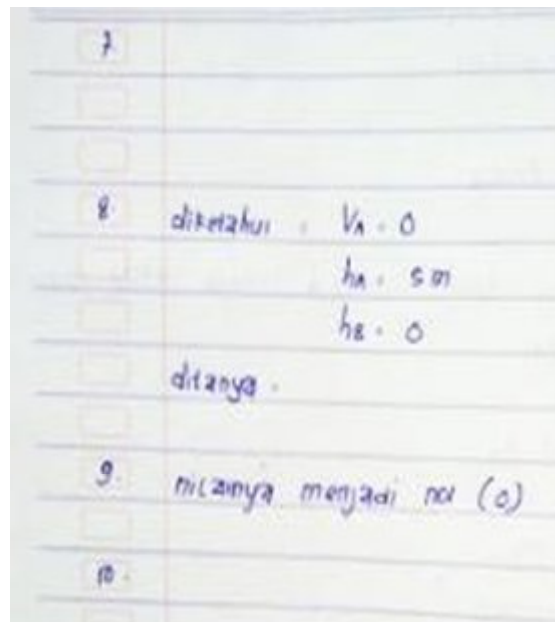 7.
8. diketahui : VA = 0
hA = 5 m
hB = 0
ditanya :
9. nilainya menjadi nol (0)
10.